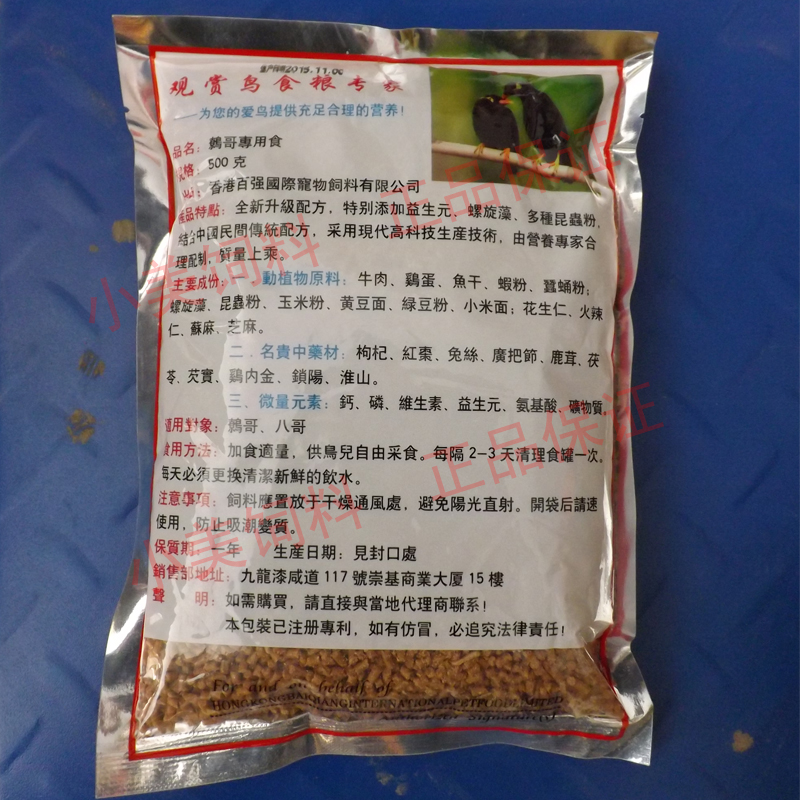 2015.11.06
观赏鸟食粮专家
——为您的爱鸟提供充足合理的营养!
品名:鷯哥專用食
規格:500克
香港百强國際寵物飼料有限公司
產品特點:全新升級配方,特别添加益生元、螺旋藻、多種昆蟲粉,
結合中國民間傳統配方,采用現代高科技生産技術,由營養專家合
理配制,質量上乘。
主要成份:動植物原料:牛肉、鷄蛋、魚干、蝦粉、蠶蛹粉;
螺旋藻、昆蟲粉、玉米粉、黄豆面、緑豆粉、小米面;花生仁、火辣
仁、蘇麻、芝麻。
二.名貴中藥材:枸杞、紅棗、兔絲、廣把節、鹿茸、茯
苓、芡實、鷄内金、鎖陽、淮山。
三、微量元素:鈣、磷、維生素、益生元、氨基酸、礦物質。
適用對象:鷯哥、八哥
食用方法:加食適量,供鳥兒自由采食。每隔2-3天清理食罐一次。
每天必須更换清潔新鮮的飲水。
注意事項:飼料應置放于干燥通風處,避免陽光直射。開袋后請速
使用,防止吸潮變質。
保質期:一年 生産日期:見封口處
銷售部地址:九龍漆咸道117號崇基商業大厦15樓
聲 明:如需購買,請直接與當地代理商聯系!
本包裝已注册專利,如有仿冒,必追究法律責任!
For and on behalf of
HONGKONGBAIQIANGINTERNATIONALPETFOODLIMITED
Authorized Signature(s)
小美饲料 正品保证
小美饲料 正品保证